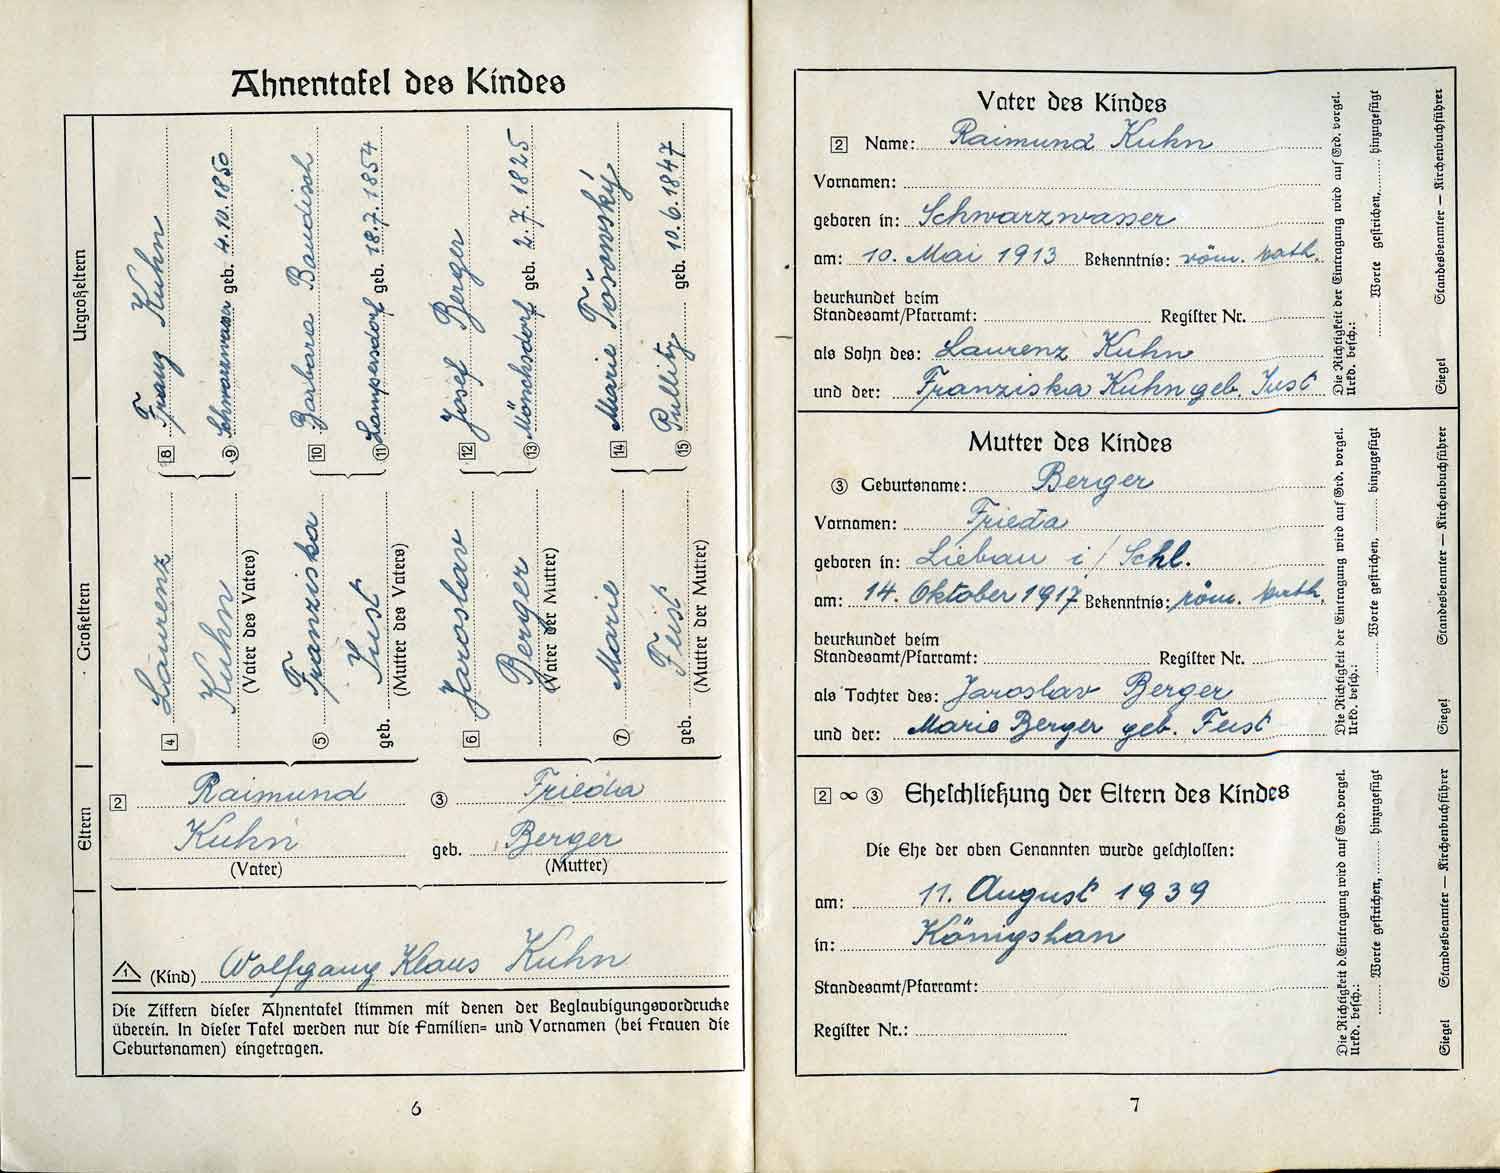 Ahnentafel des Kindes
Urgroßeltern
8 Franz Kuhn
9 Schwarzwasser geb. 4.10.1850
10 Barbara Baudisch
11 Lampersdorf geb. 18.7.1854
12 Josef Berger
13 Mönchsdorf geb. 2.7.1825
14 Marie Tošovský
15 geb. 10.6.1847
Großeltern
4 Laurenz
Kuhn
(Vater des Vaters)
5 Franziska
geb. Just
(Mutter des Vaters)
6 Jaroslav
Berger
(Vater der Mutter)
7 Marie
geb. Feist
(Mutter der Mutter)
Eltern
2 Raimund
Kuhn
(Vater)
3 Frieda
geb. Berger
(Mutter)
1 (Kind) Wolfgang Klaus Kuhn
Die Ziffern dieser Ahnentafel stimmen mit denen der Beglaubigungsvordrucke
überein. In dieser Tafel werden nur die Familien= und Vornamen (bei Frauen die
Geburtsnamen) eingetragen.
6
Vater des Kindes
2 Name: Raimund Kuhn
Vornamen:
geboren in: Schwarzwasser
am: 10. Mai 1913 Bekenntnis: röm. kath.
beurkundet beim
Standesamt/Pfarramt: Register Nr.
als Sohn des: Laurenz Kuhn
und der: Franziska Kuhn geb. Just
Die Richtigkeit der Eintragung wird auf Grd. vorgel.
Urkd. besch.:
Worte gestrichen, hinzugefügt
Siegel Standesbeamter — Kirchenbuchführer
Mutter des Kindes
3 Geburtsname: Berger
Vornamen: Frieda
geboren in: Liebau i/Schl.
am: 14. Oktober 1917 Bekenntnis: röm. kath.
beurkundet beim
Standesamt/Pfarramt: Register Nr.
als Tochter des: Jaroslav Berger
und der: Marie Berger geb. Feist
Die Richtigkeit der Eintragung wird auf Grd. vorgel.
Urkd. besch.:
Worte gestrichen, hinzugefügt
Siegel Standesbeamter — Kirchenbuchführer
2 ∞ 3 Eheschließung der Eltern des Kindes
Die Ehe der oben Genannten wurde geschlossen:
am: 11. August 1939
in: Königshan
Standesamt/Pfarramt:
Register Nr.:
Die Richtigkeit d. Eintragung wird auf Grd. vorgel.
Urkd. besch.:
Worte gestrichen, hinzugefügt
Siegel Standesbeamter — Kirchenbuchführer
7